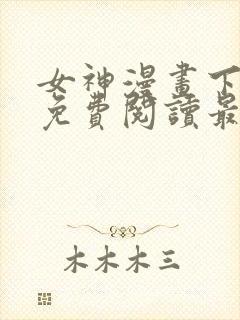 女神漫畫下
免費閱讀最
木木木三